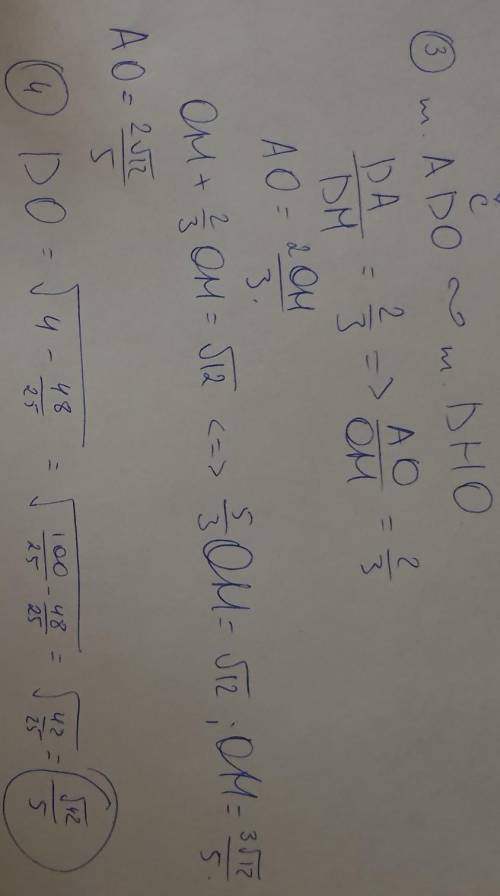 ③ т. ADO ∾ т. DMO
C
DA/DM = 2/3 => AO/OM = 2/3
AO = 2OM/3.
OM + 2/3 OM = √12 <=> 5/3 OM = √12 ; OM = 3√12/5.
AO = 2√12/5
④ DO = √(4 - 48/25) = √(100/25 - 48/25) = √(42/25) = √42/5